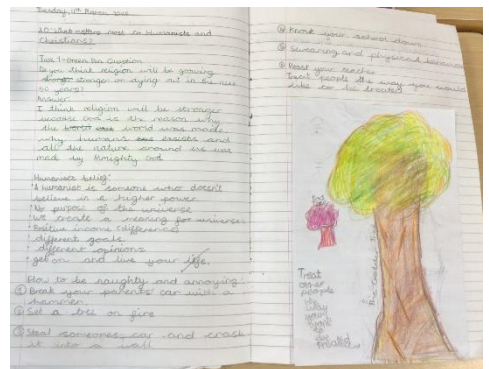 Tuesday, 11th March
LO: What matters most to Humanists and
Christians?
Task 1-Green Pen Question
Do you think religion will be growing
stronger or dying out in the next
50 years?
Answer
I think religion will be stronger
because God is the reason why
the world was made
why humans exists and
all the nature around us was
made by Almighty God
Humanist belief:
A humanist is someone who doesn't
believe in a higher power
No purpose of the universe
We create a meaning for universe
Positive income (difference)
different goals
different opinions
get on and live your life.
How to be naughty and annoying:
① Break your parents' car with a
hammer.
② Set a tree on fire
③ Steal someones car and crash
it into a wall
④ Knock your school down
⑤ Swearing and physical behaviour
⑥ your teacher
Treat people the way you would
like to be treated
Treat
other
people
the
way
you
want
to
be
treated